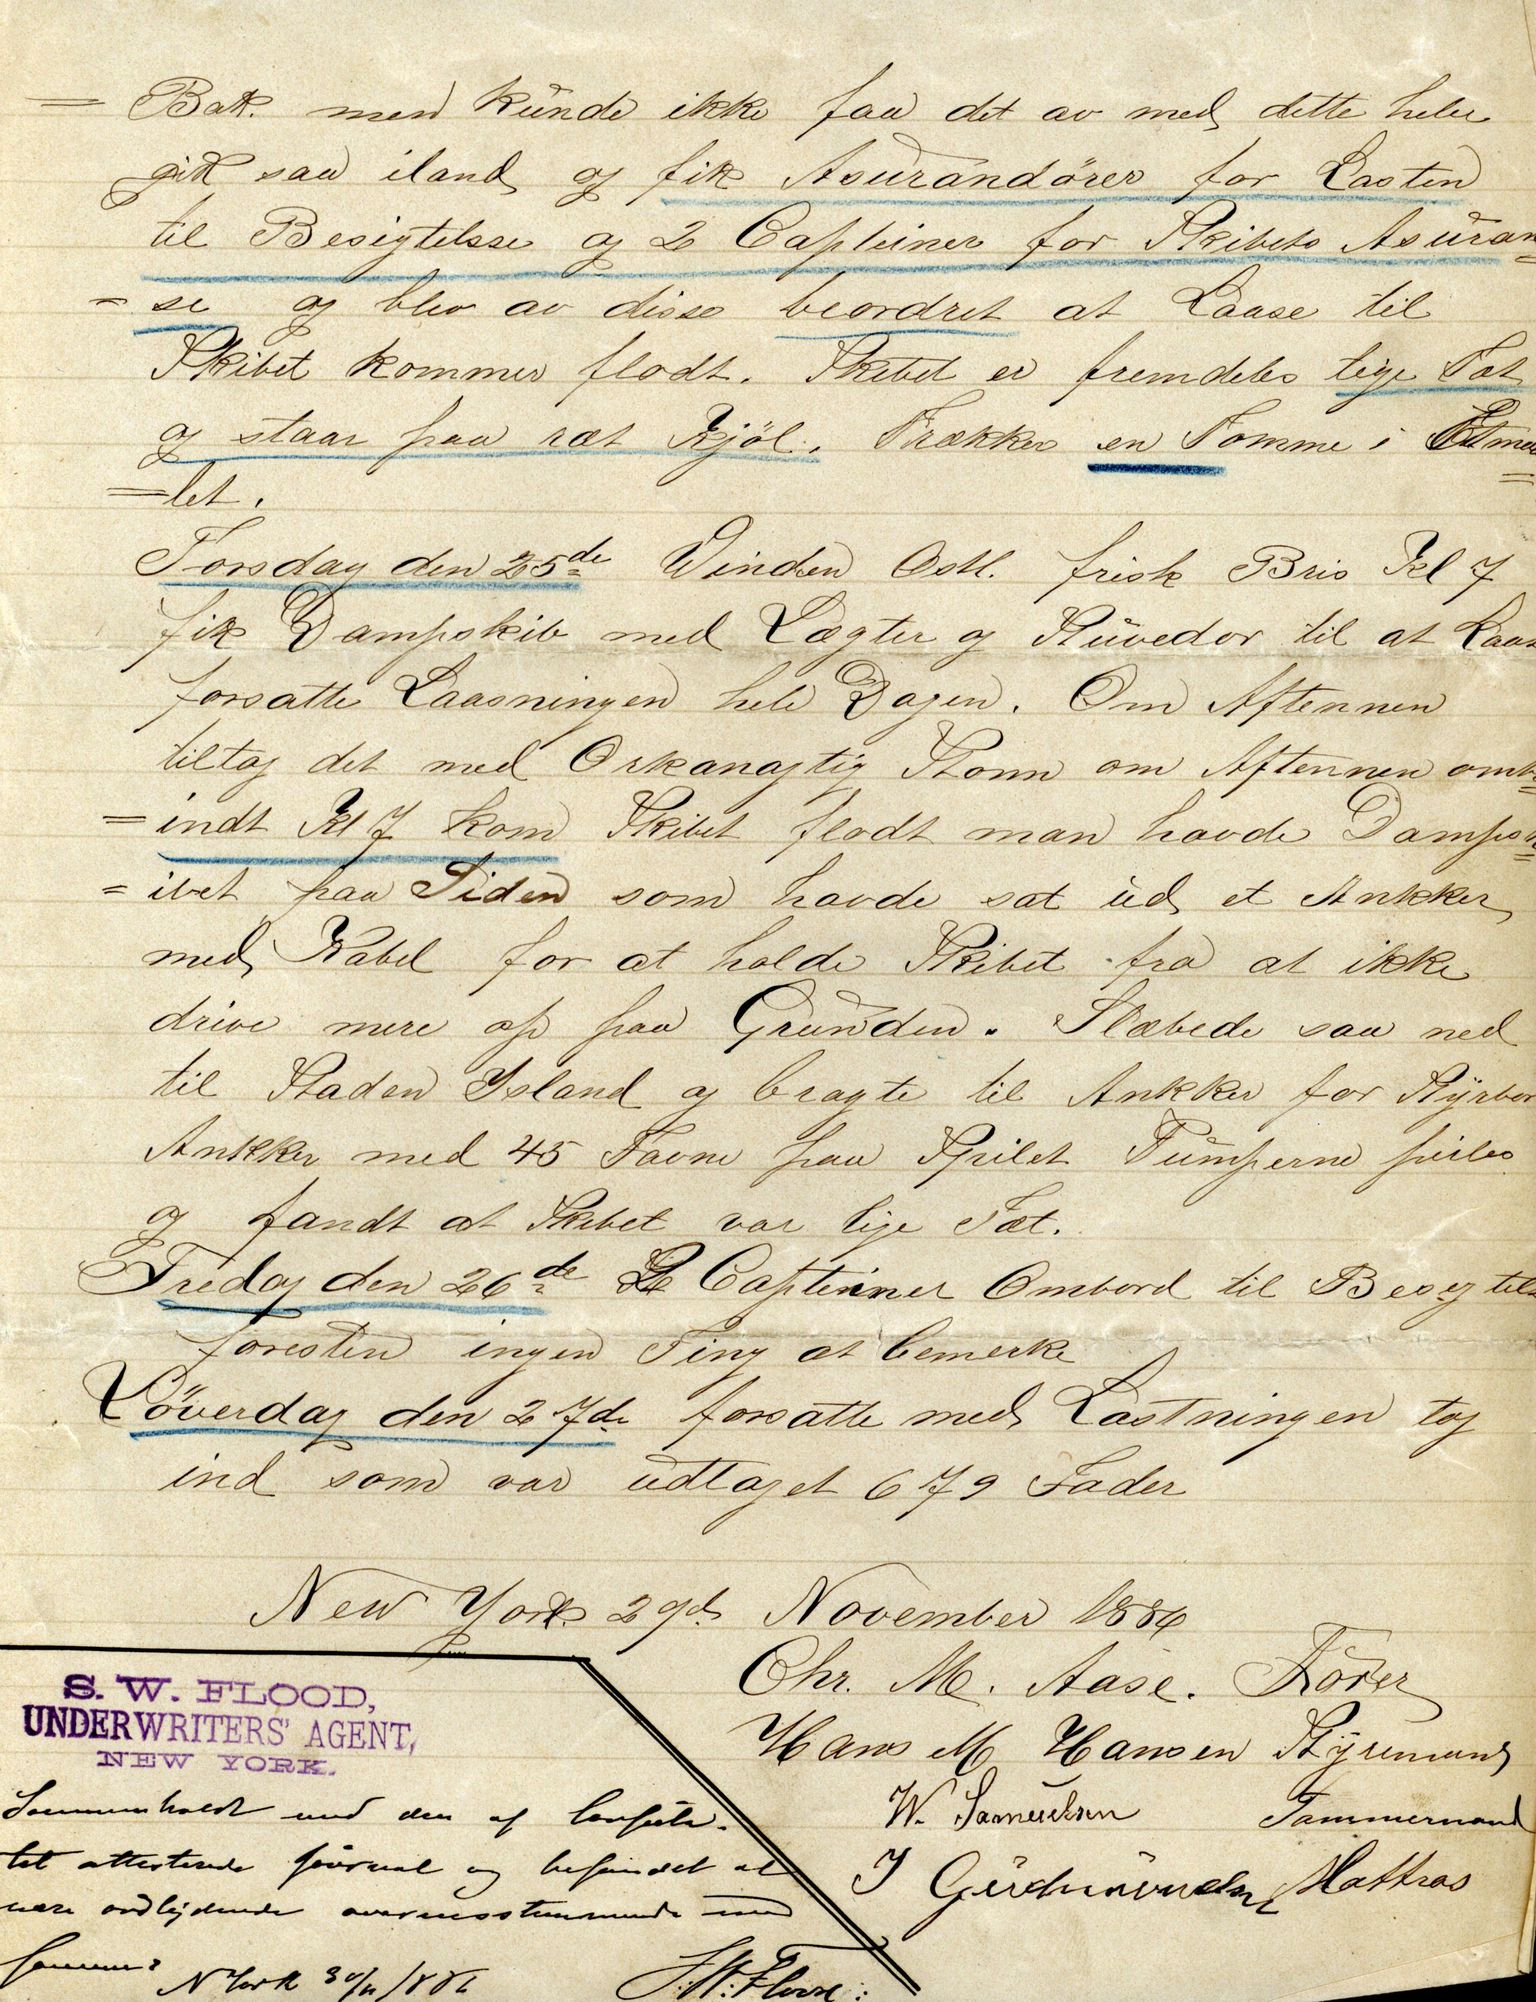 = Bak. men kunde ikke faa det av med dette heler
gik saa iland og fik Asurandörer for Lasten
til Besigtelsse og 2 Capteiner for Skibets Asuran=
= se og blev av disse beordret at Laase til
Skibet kommer flodt. Skibet er fremdeles lige Tæt
og staar paa ræt Kjöl. Trækker en Tomme i Etmaa=
=let.
Torsdag den 25de Vinden Ostl. frisk Bris Kl 7
fik Dampskib med Lægter og Stuvedor til at Laase
forsatte Laasningen hele Dagen. Om Aftennen
tiltog det med Orkanagtig Storm om Aftennen omtr=
= indt Kl 7 kom Skibet flodt man havde Dampsk=
= ibet paa Siden som havde sat ud et Ankker
med Kabel for at holde Skibet fra at ikke
drive mere op paa Grunden. Slæbede saa ned
til Staden Island og bragte til Ankker for Styrbor
Ankker med 45 Favne paa Spilet Pumperne peiles
og fandt at Skibet var lige Tæt.
Fredag den 26de 2 Capteiner Ombord til Besigtels
foresten ingen Ting at bemerke
Löverdag den 27de forsatte med Lastningen tog
ind som var udtaget 679 Fader
New York 29de November 1886
Chr. M. Aase. Förer
Hans M Hansen Styremand
W. Samuelsen Tømmermand
J Gudmundsen Mattros
S. W. FLOOD,
UNDERWRITERS' AGENT,
NEW YORK.
Sammenholdt med den af
tet attesterede journal og befundet at
være ordlydende overensstemmende med
samme
N York 30/11/1886 S. W. Flood: